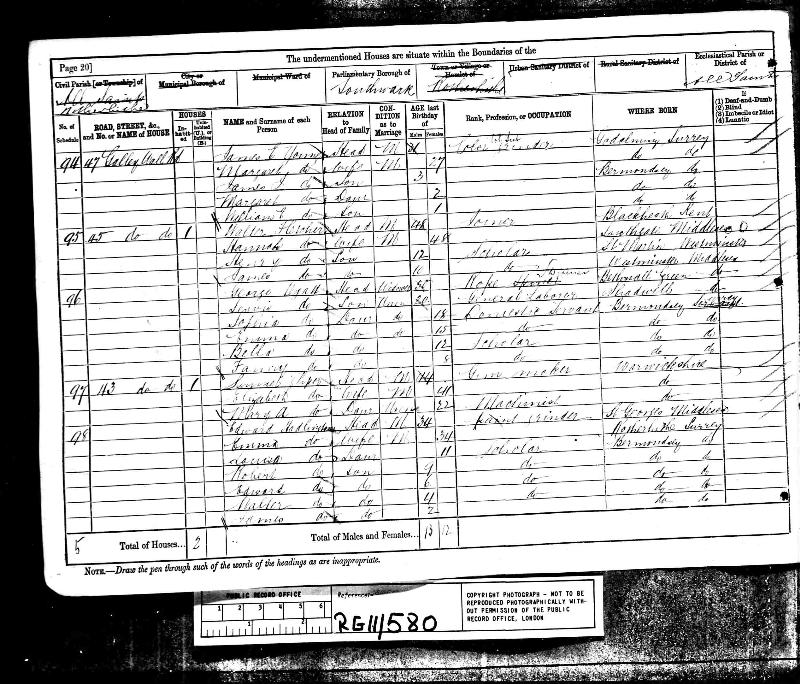 Page 20]
The undermentioned Houses are situate within the Boundaries of the
Civil Parish [or Township] of
City or Municipal Borough of
Municipal Ward of
Parliamentary Borough of
Southwark
Town or Village or Hamlet of
Urban Sanitary District of
Rural Sanitary District of
Ecclesiastical Parish or District of
No. of Schedule
ROAD, STREET, &c., and No. or NAME of HOUSE
HOUSES
In-habited
Unin-habited (U.), or Building (B.)
NAME and Surname of each Person
RELATION to Head of Family
CON-DITION as to Marriage
AGE last Birthday of
Males
Females
Rank, Profession, or OCCUPATION
WHERE BORN
If
(1) Deaf-and-Dumb
(2) Blind
(3) Imbecile or Idiot
(4) Lunatic
94 47 Galley Wall Rd James Young Head M Grinder Godalming Surrey
Margaret do Wife M 27 do do
James do Son 3 Bermondsey do
Margaret do Daur 2 do do
William do Son 1 do do
95 45 do do 1 Walter Head M 48 Blackheath Kent
Hannah do Wife M 48 Middlesex
Henry do Son 12 Scholar St Martin Westminster
James do do 10 do Westminster Middlesex
96 George Head Widower Rope Bethnall Green do
do Son Unm 20 General Laborer Shadwell do
Sophia do Daur do 18 Domestic Servant Bermondsey Surrey
Emma do do do 15 do do do
Bella do do 12 Scholar do do
Fanny do do 8 do do do
97 43 do do 1 Head M 44 Gun maker Warwickshire
Elizabeth do Wife M 41 do
Mary A do Daur 22 Machinist do
98 Edward Head M 34 paint Grinder St Georges Middlesex
Emma do Wife M 34 Rotherhithe Surrey
Louisa do Daur 11 Scholar Bermondsey do
Robert do Son do do do
Edward do do 6 do do do
Walter do do 4 do do do
James do do 2 do do
5 Total of Houses... 2
Total of Males and Females... 13 12
NOTE.—Draw the pen through such of the words of the headings as are inappropriate.
PUBLIC RECORD OFFICE
1 2 3 4 5 6
1 2
Reference:-
RG11/580
COPYRIGHT PHOTOGRAPH - NOT TO BE
REPRODUCED PHOTOGRAPHICALLY WITH-
OUT PERMISSION OF THE PUBLIC
RECORD OFFICE, LONDON